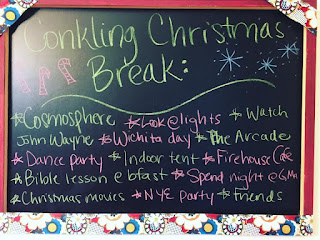 Conkling Christmas
Break:
☆Cosmosphere ☆Look@lights ☆Watch
John Wayne ☆Wichita day ☆The Arcade
☆Dance party ☆Indoor tent ☆Firehouse Cafe
☆Bible lesson @ bfast ☆Spend night @ G.Ma
☆Christmas movies ☆NYE party ☆Friends